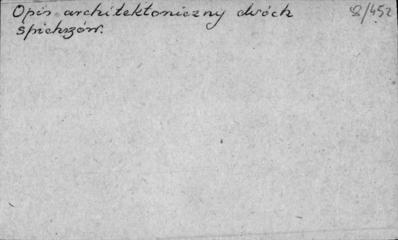 Opis architektoniczny dwóch 8/452
spichrzów.